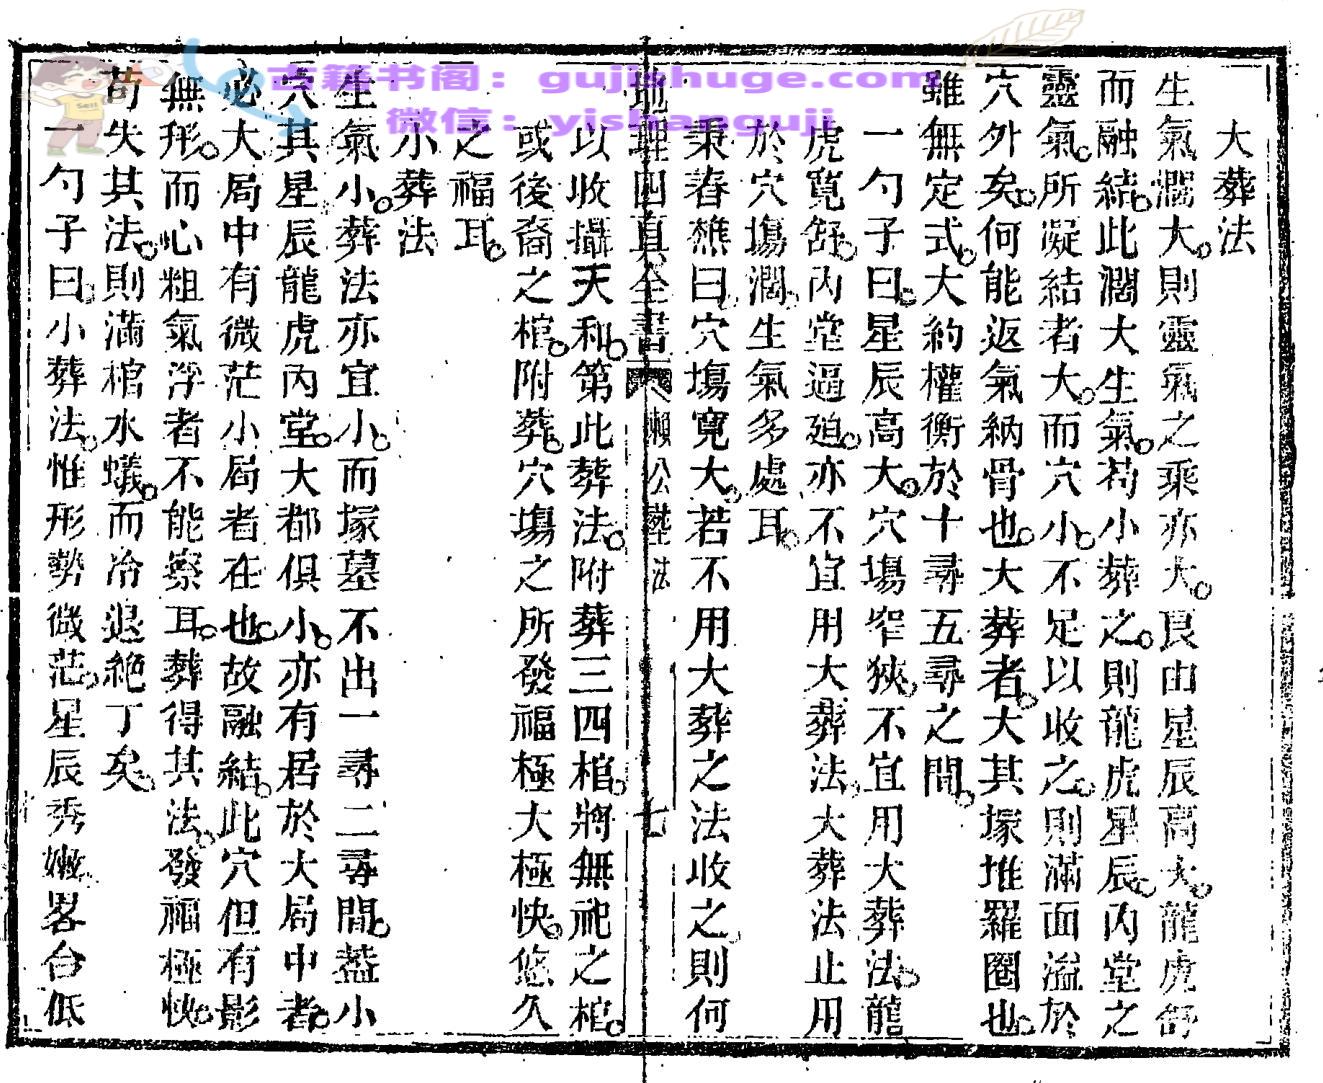 古籍书阁：gujishuge.com
微信：yishanguji
大葬法
生氣濶大則靈氣之乘亦大良由星辰高大龍虎舒
而融結此濶大生氣苟小葬之則龍虎星辰內堂之
靈氣所凝結者大而穴小不足以收之則滿面溢於
穴外矣何能返氣納骨也大葬者大其塚堆羅圈也
雖無定式大約權衡於十尋五尋之間
一勺子曰星辰高大穴塲窄狹不宜用大葬法龍
虎寬舒內堂逼廹亦不宜用大葬法大葬法止用
於穴塲濶生氣多處耳
秉春樵曰穴塲寬大若不用大葬之法收之則何
地理四真全書 懶公葬法 七
以收攝天和第此葬法附葬三四棺將無祀之棺
或後裔之棺附葬穴塲之所發福極大極快悠久
之福耳
小葬法
生氣小葬法亦宜小而塚墓不出一尋二尋間葢小
穴其星辰龍虎內堂大都俱小亦有居於大局中者
必大局中有微茫小局者在也故融結此穴但有影
無形而心粗氣浮者不能察耳葬得其法發福極快
苟失其法則滿棺水蟻而冷退絶丁矣
一勺子曰小葬法惟形勢微茫星辰秀嫩畧台低